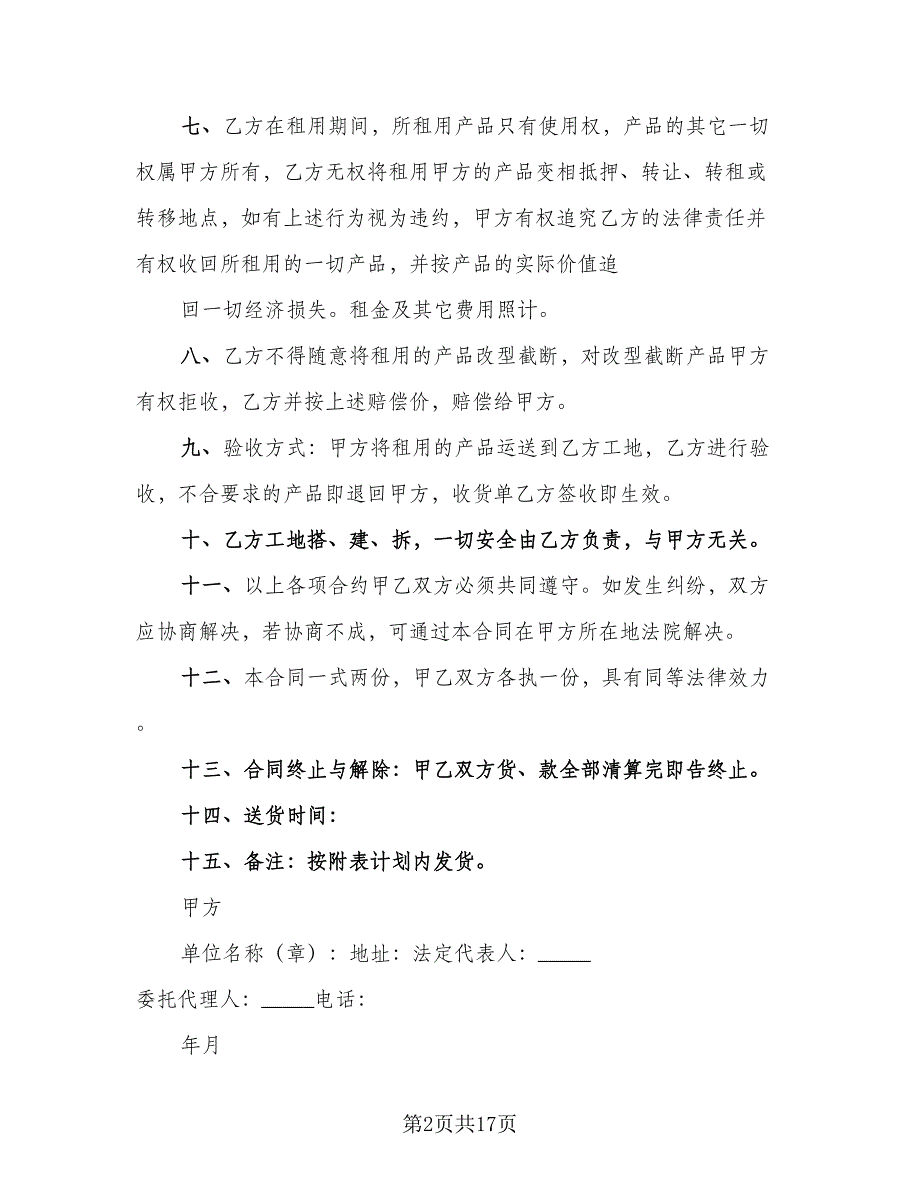 七、乙方在租用期间，所租用产品只有使用权，产品的其它一切
权属甲方所有，乙方无权将租用甲方的产品变相抵押、转让、转租或
转移地点，如有上述行为视为违约，甲方有权追究乙方的法律责任并
有权收回所租用的一切产品，并按产品的实际价值追
回一切经济损失。租金及其它费用照计。
八、乙方不得随意将租用的产品改型截断，对改型截断产品甲方
有权拒收，乙方并按上述赔偿价，赔偿给甲方。
九、验收方式：甲方将租用的产品运送到乙方工地，乙方进行验
收，不合要求的产品即退回甲方，收货单乙方签收即生效。
十、乙方工地搭、建、拆，一切安全由乙方负责，与甲方无关。
十一、以上各项合约甲乙双方必须共同遵守。如发生纠纷，双方
应协商解决，若协商不成，可通过本合同在甲方所在地法院解决。
十二、本合同一式两份，甲乙双方各执一份，具有同等法律效力
。
十三、合同终止与解除：甲乙双方货、款全部清算完即告终止。
十四、送货时间：
十五、备注：按附表计划内发货。
甲方
单位名称（章）：地址：法定代表人：_____
委托代理人：_____电话：
年月
第2页共17页